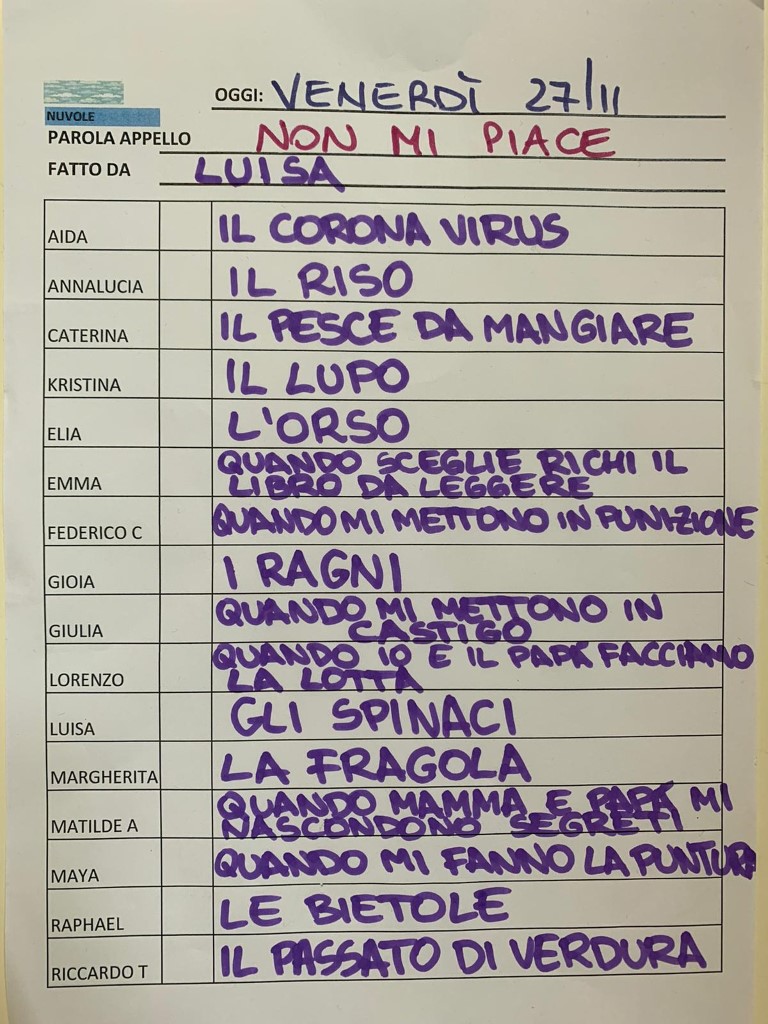 OGGI: VENERDÌ 27/11
NUVOLE
PAROLA APPELLO NON MI PIACE
FATTO DA LUISA
AIDA IL CORONA VIRUS
ANNALUCIA IL RISO
CATERINA IL PESCE DA MANGIARE
KRISTINA IL LUPO
ELIA L'ORSO
EMMA QUANDO SCEGLIE RICHI IL
LIBRO DA LEGGERE
FEDERICO C QUANDO MI METTONO IN PUNIZIONE
GIOIA I RAGNI
GIULIA QUANDO MI METTONO IN
CASTIGO
LORENZO QUANDO IO E IL PAPÀ FACCIAMO
LA LOTTA
LUISA GLI SPINACI
MARGHERITA LA FRAGOLA
MATILDE A QUANDO MAMMA E PAPÀ MI
NASCONDONO SEGRETI
MAYA QUANDO MI FANNO LA PUNTURA
RAPHAEL LE BIETOLE
RICCARDO T IL PASSATO DI VERDURA